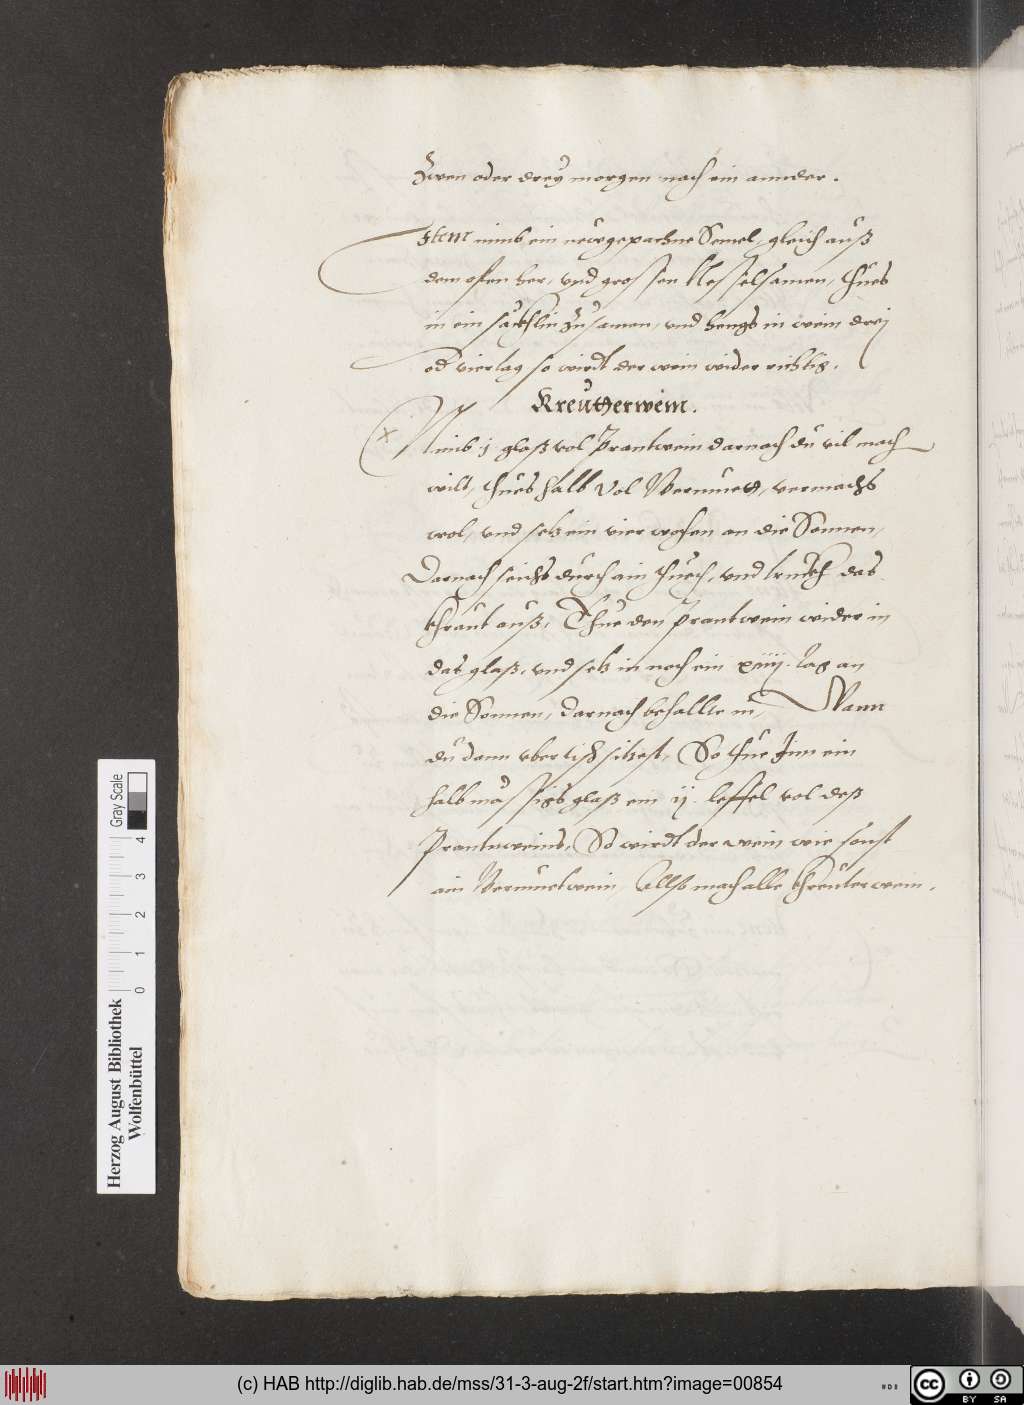 Zwen oder dreÿ morgen nach ein annder.
Item nimb ein newgepachne Semel, gleich auß
dem ofen her, und grossen Nesselsamen, thues
in ein säckhlin Zusamen, und hengs in wein dreÿ
od viertag so wirdt der wein wider richtig.
Kreütterwein.
Nimb j glaß vol Prantwein darnach du vil mach
wilt, thues halb vol Vermuet, vermachs
wol, und setz ein vier wochen an die Sonnen,
Darnach seichs durch ain thuech, und truckh das
khraut auß, Thue den prantwein wider in
das glaß, und setz in noch ein xiiij. tag an
die Sonnen, darnach behallte in, Wann
du dann uber tisch sitzest, So thue Jnn ein
halb mässigs glaß ein ij. leffel vol deß
Prantweins, So wirdt der wein wie sonst
ain Vermuetwein, Allso mach alle khreuterwein.
Herzog August Bibliothek
Wolfenbüttel
0 1 2 3 4
Gray Scale
(c) HAB http://diglib.hab.de/mss/31-3-aug-2f/start.htm?image=00854
cc BY SA